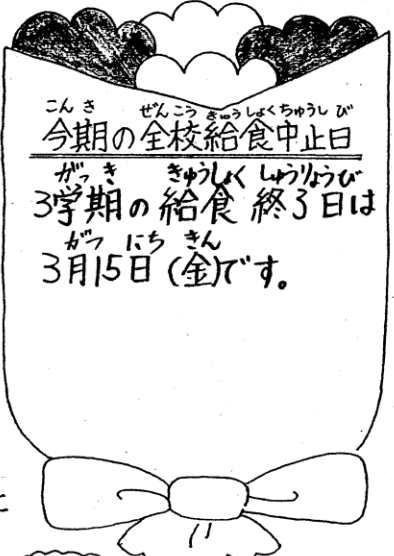 こんき ぜんこうきゅうしょくちゅうしび
今期の全校給食中止日
がっき きゅうしょく しゅうりょうび
3学期の給食終了日は
がつ にち きん
3月15日(金)です。